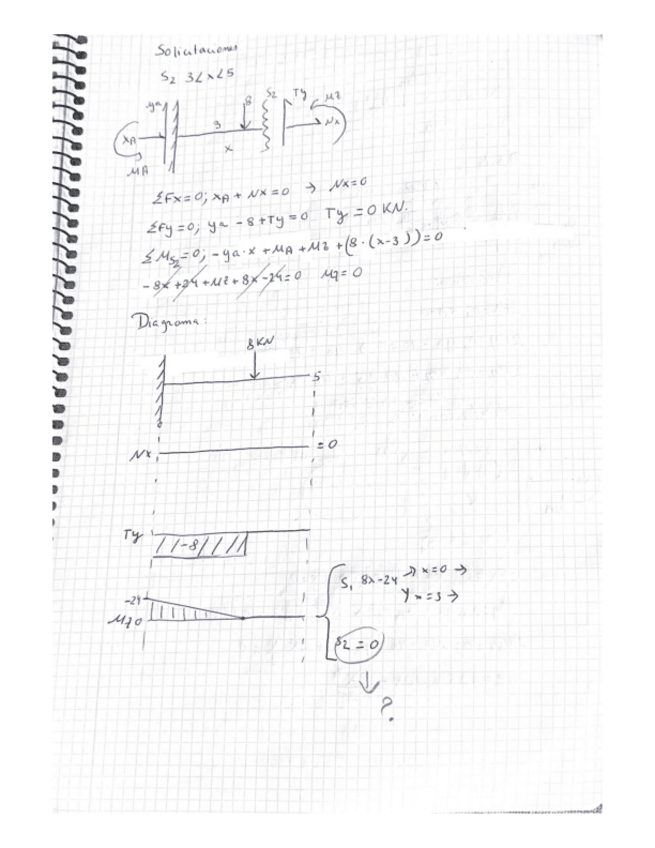 Solicitaciones
S2 3<x<5
ya 8 S2 Ty Mz
XA 3 Nx
x
MA
ΣFx=0; XA + Nx = 0 → Nx=0
ΣFy=0; ya - 8 + Ty = 0 Ty = 0 KN.
ΣMS2=0; -ya·x + MA + Mz + (8·(x-3))=0
-8x + 24 + Mz + 8x - 24 = 0 Mz = 0
Diagrama:
8KN
5
Nx = 0
Ty
-8
S1 8x-24 → x=0 →
y x=3 →
-24
Mz 0
S2 = 0
?